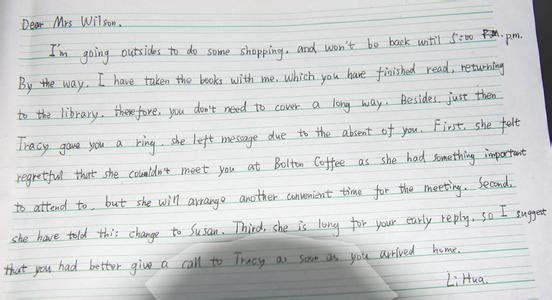 Dear Mrs Wilson.
I'm going outsides to do some shopping. and won't be back until 5:00 p.m.
By the way. I have taken the books with me. which you have finished read, returning
to the library. therefore, you don't need to cover a long way. Besides. just then
Tracy gave you a ring. she left message due to the absent of you. First, she felt
regretful that she couldn't meet you at Bolton Coffee as she had something important
to attend to, but she will arrange another convenient time for the meeting. Second.
she have told this change to Susan. Third, she is long for your early reply, so I suggest
that you had better give a call to Tracy as soon as you arrived home.
Li Hua.